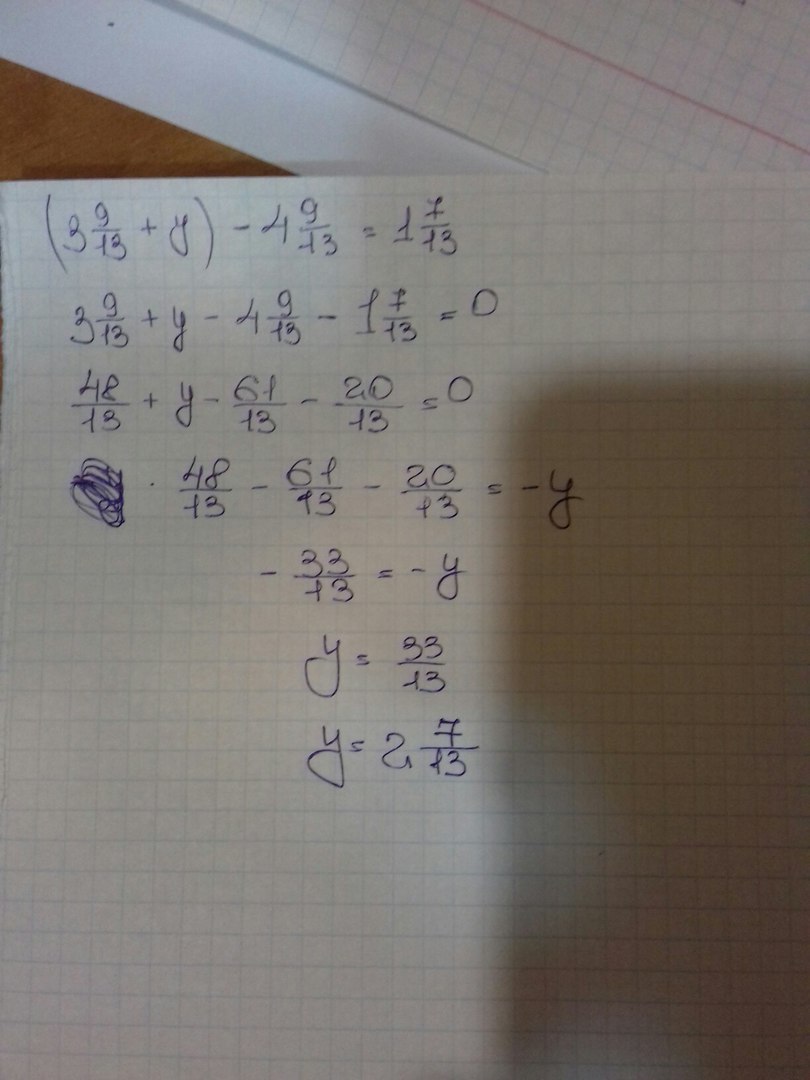 (3 9/13 + y) - 4 9/13 = 1 7/13
3 9/13 + y - 4 9/13 - 1 7/13 = 0
48/13 + y - 61/13 - 20/13 = 0
48/13 - 61/13 - 20/13 = -y
- 33/13 = - y
y = 33/13
y = 2 7/13